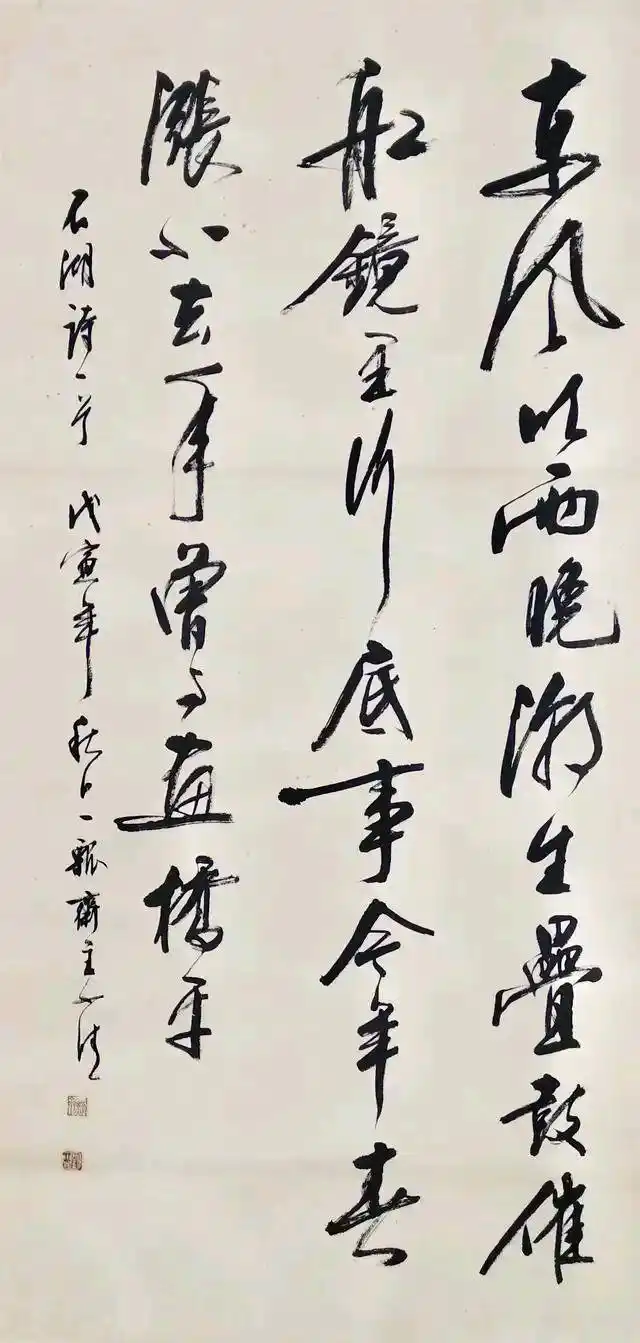 東風吹雨晚潮生疊鼓催
船鏡里行底事今年春
漲小去年曾与畫橋平
石湖詩一首 戊寅年秋日一瓢齋主人